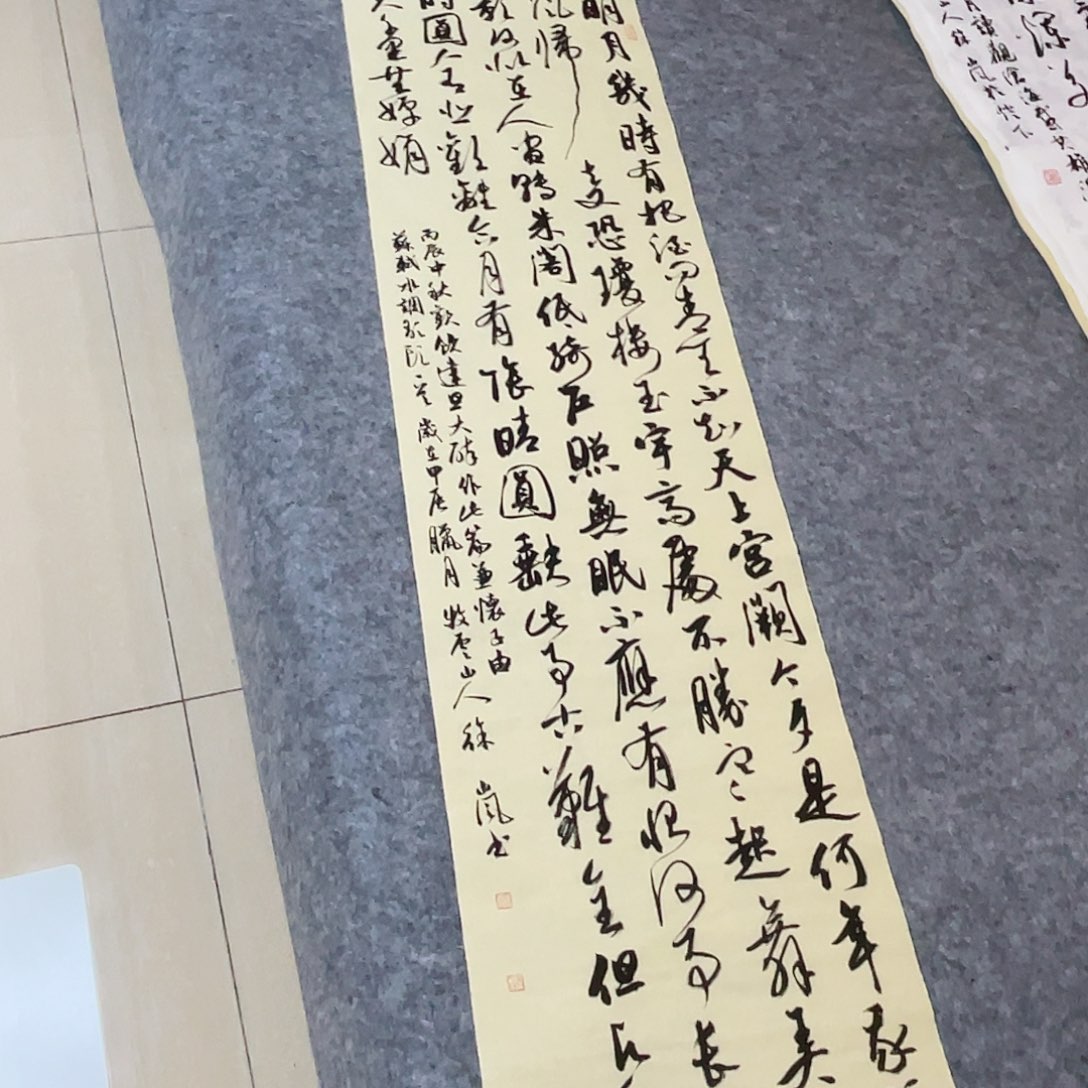 深
月讀觀滄海
山人徐嵐於
明月幾時有把酒問青天不知天上宮闕今夕是何年我
風歸去又恐瓊樓玉宇高處不勝寒起舞弄
影何似在人間轉朱閣低綺戶照無眠不應有恨何事長
時圓人有悲歡離合月有陰晴圓缺此事古難全但長
久千里共嬋娟
丙辰中秋歡飲達旦大醉作此篇兼懷子由
蘇軾水調歌頭一首歲在甲辰臘月牧雲山人徐嵐書